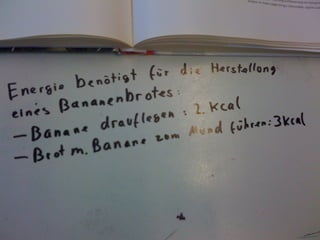 Energie benötigt für die Herstellung
eines Bananenbrotes:
– Banane drauflegen : 2 kcal
– Brot m. Banane zom Mund führen: 3 kcal